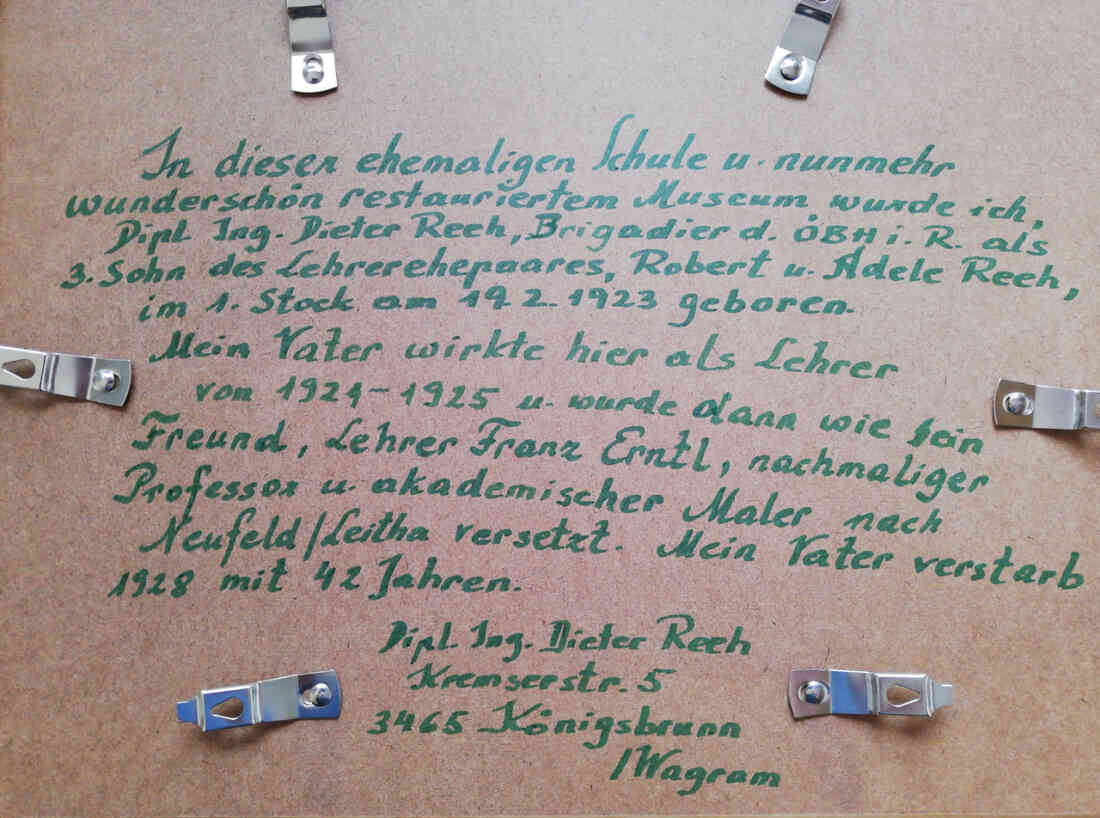 In dieser ehemaligen Schule u. nunmehr
wunderschön restauriertem Museum wurde ich,
Dipl. Ing. Dieter Reeh, Brigadier d. ÖBH i. R. als
3. Sohn des Lehrerehepaares, Robert u. Adele Reeh,
im 1. Stock am 19.2.1923 geboren.
Mein Vater wirkte hier als Lehrer
von 1921-1925 u. wurde dann wie sein
Freund, Lehrer Franz Erntl, nachmaliger
Professor u. akademischer Maler nach
Neufeld/Leitha versetzt. Mein Vater verstarb
1928 mit 42 Jahren.
Dipl. Ing. Dieter Reeh
Kremserstr. 5
3465 Königsbrunn
/Wagram